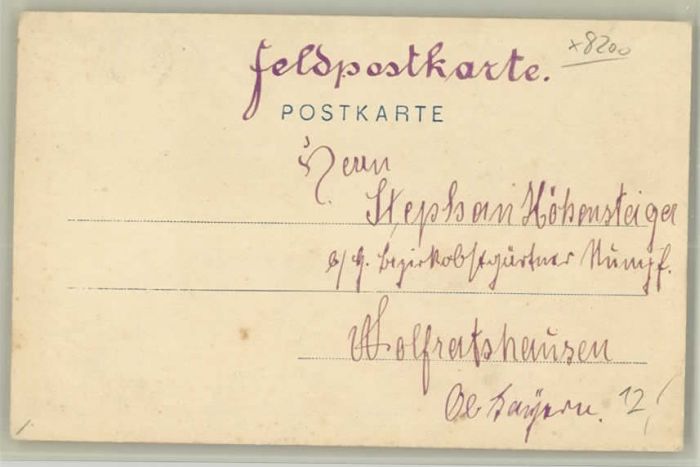 Feldpostkarte.
x8200
POSTKARTE
Herrn
Stephan Höhensteiger
Bezirksobstgärtner Rumpf.
Wolfratshausen
Ob. bayern.
12